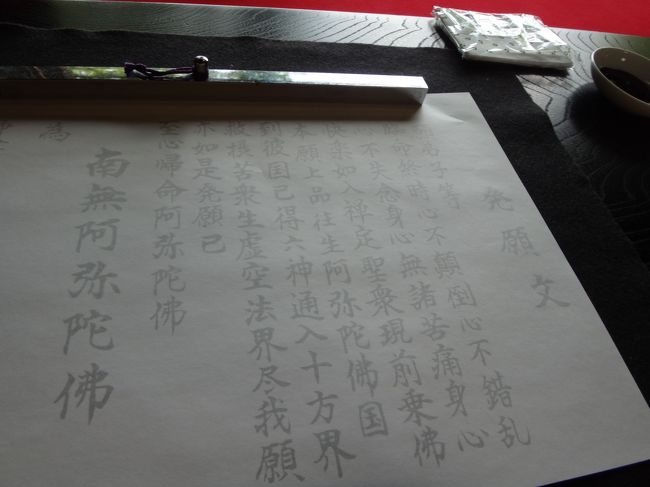 発願文
弟子等
臨命終時心不顛倒心不錯乱
心不失念身心無諸苦痛身心
快楽如入禅定聖衆現前乗佛
本願上品往生阿弥陀佛国
到彼国已得六神通入十方界
救摂苦衆生虚空法界尽我願
亦如是発願已
至心帰命阿弥陀佛
南無阿弥陀佛
為